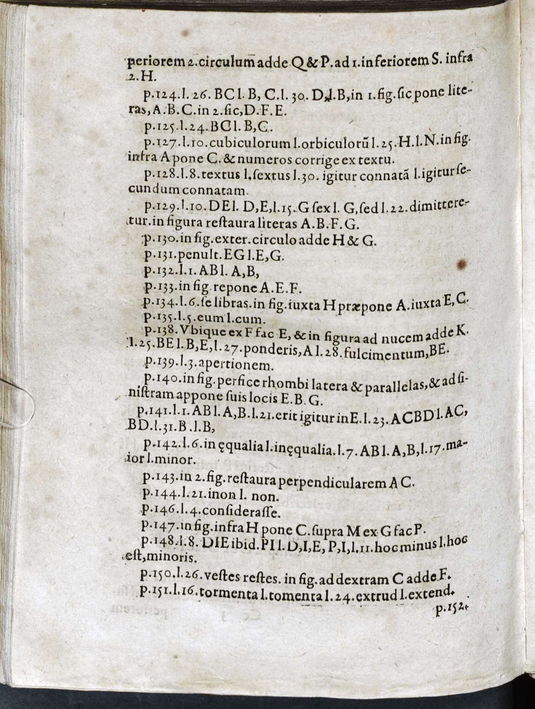 periorem 2. circulum adde Q & P. ad 1. inferiorem S. infra
2. H.
p.124. l. 26. BC l. B, C. l. 30. D, l. B, in 1. fig. sic pone lite-
ras, A. B. C. in 2. sic, D. F. E.
p.125. l. 24. BC l. B, C.
p.127. l. 10. cubiculorum l. orbiculorũ l. 25. H. l. N. in fig.
infra A pone C. & numeros corrige ex textu.
p.128. l. 8. textus l. sextus l. 30. igitur connatã l. igitur se-
cundum connatam.
p.129. l. 10. DE l. D, E, l. 15. G sex l. G, sed l. 22. dimittere-
tur. in figura restaura literas A. B. F. G.
p.130. in fig. exter. circulo adde H & G.
p.131. penult. EG l. E, G.
p.132. l. 1. AB l. A, B,
p.133. in fig. repone A. E. F.
p.134. l. 6. se libras. in fig. iuxta H præpone A. iuxta E, C.
p.135. l. 5. eum l. cum.
p.138. Vbique ex F fac E, & in figura ad nucem adde K.
l. 25. BE l. B, E, l. 27. ponderis, A l. 28. fulcimentum, BE.
p.139. l. 3. apertionem.
p.140. in fig. perfice rhombi latera & parallelas, & ad si-
nistram appone suis locis E. B. G.
p.141. l. 1. AB l. A, B. l. 21. erit igitur in E. l. 23. ACBD l. AC,
BD. l. 31. B. l. B,
p.142. l. 6. in ęqualia l. inęqualia. l. 7. AB l. A, B, l. 17. ma-
ior l. minor.
p.143. in 2. fig. restaura perpendicularem A C.
p.144. l. 21. inon l. non.
p.146. l. 4. considerasse.
p.147. in fig. infra H pone C. supra M ex G fac P.
p.148. l. 8. DIE ibid. PI l. D, I, E, P, I, l. 11. hoc minus l. hoc
est, minoris.
p.150. l. 26. vestes restes. in fig. ad dextram C adde F.
p.151. l. 16. tormenta l. tomenta l. 24. extrud l. extend.
p.152.